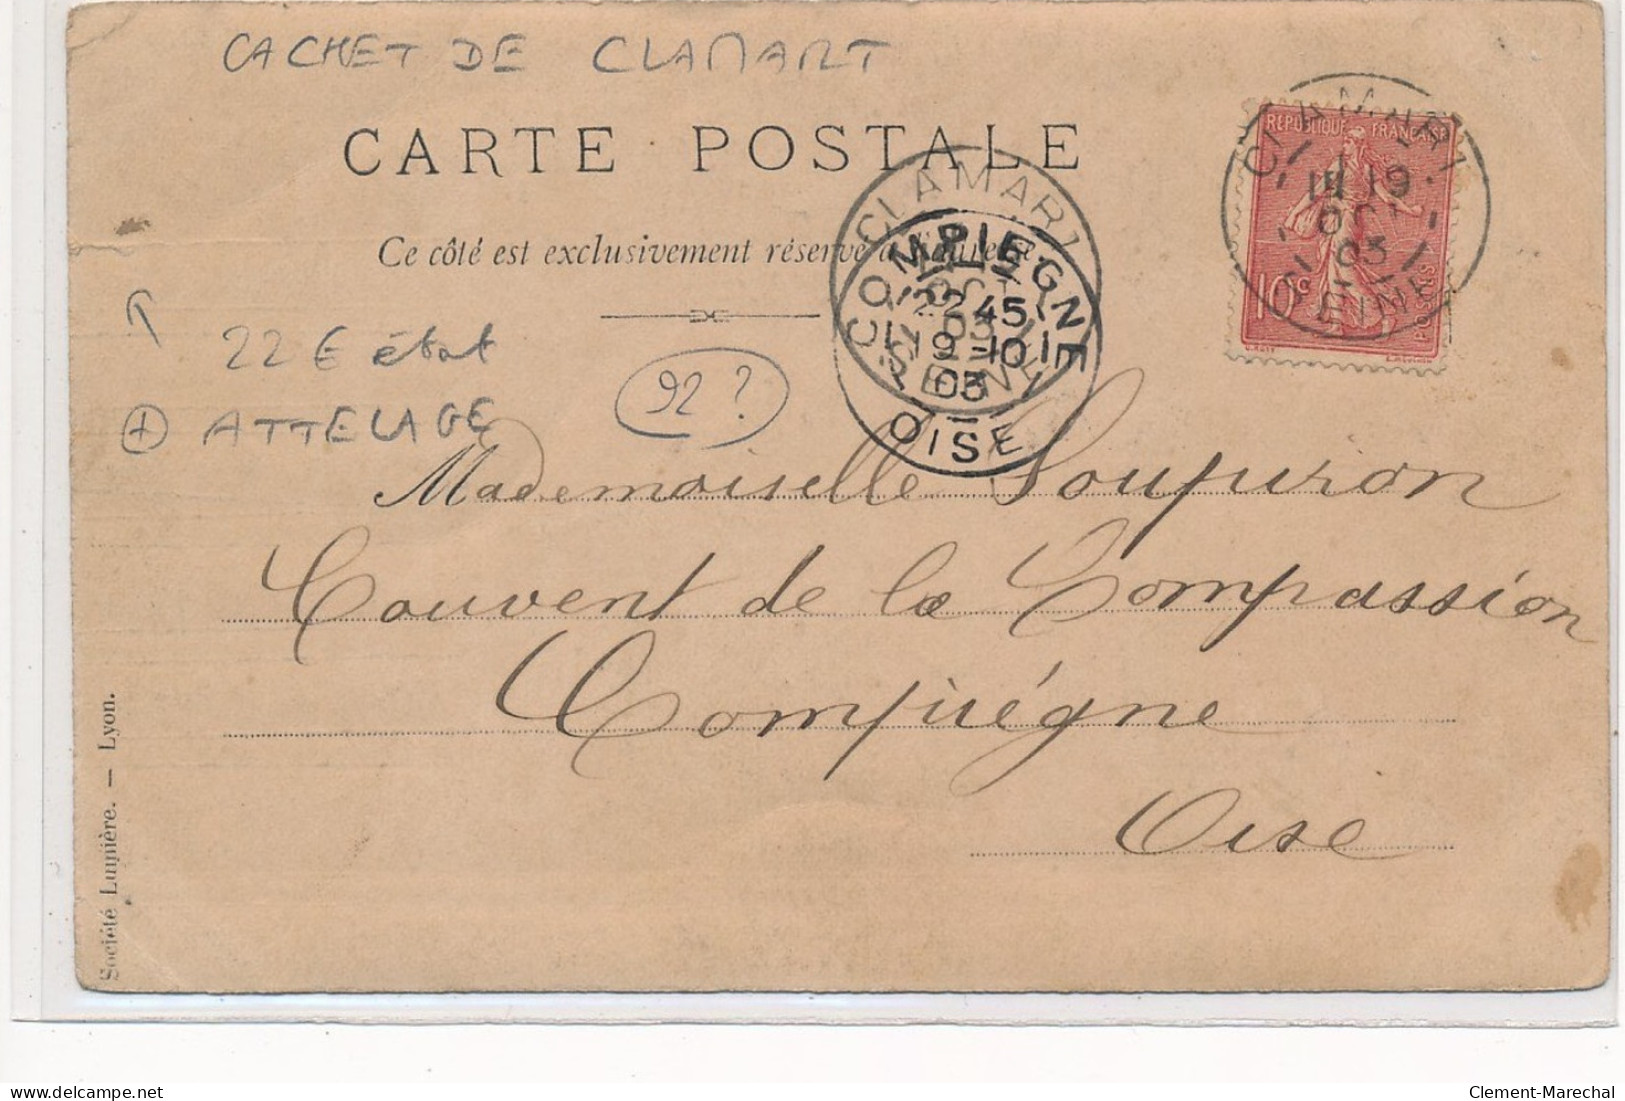 CACHET DE CLAMART
CARTE POSTALE
Ce côté est exclusivement réservé à l'adresse.
REPUBLIQUE FRANÇAISE
10c
POSTES
CLAMART
19
OCT
03
SEINE
CLAMART
OCT
03
SEINE
COMPIEGNE
22 45
19-10
03
OISE
22 € état
92 ?
+ ATTELAGE
Mademoiselle Soupiron
Couvent de la Compassion
Compiégne
Oise
Société Lumière. — Lyon.
delcampe.net
Clement-Marechal